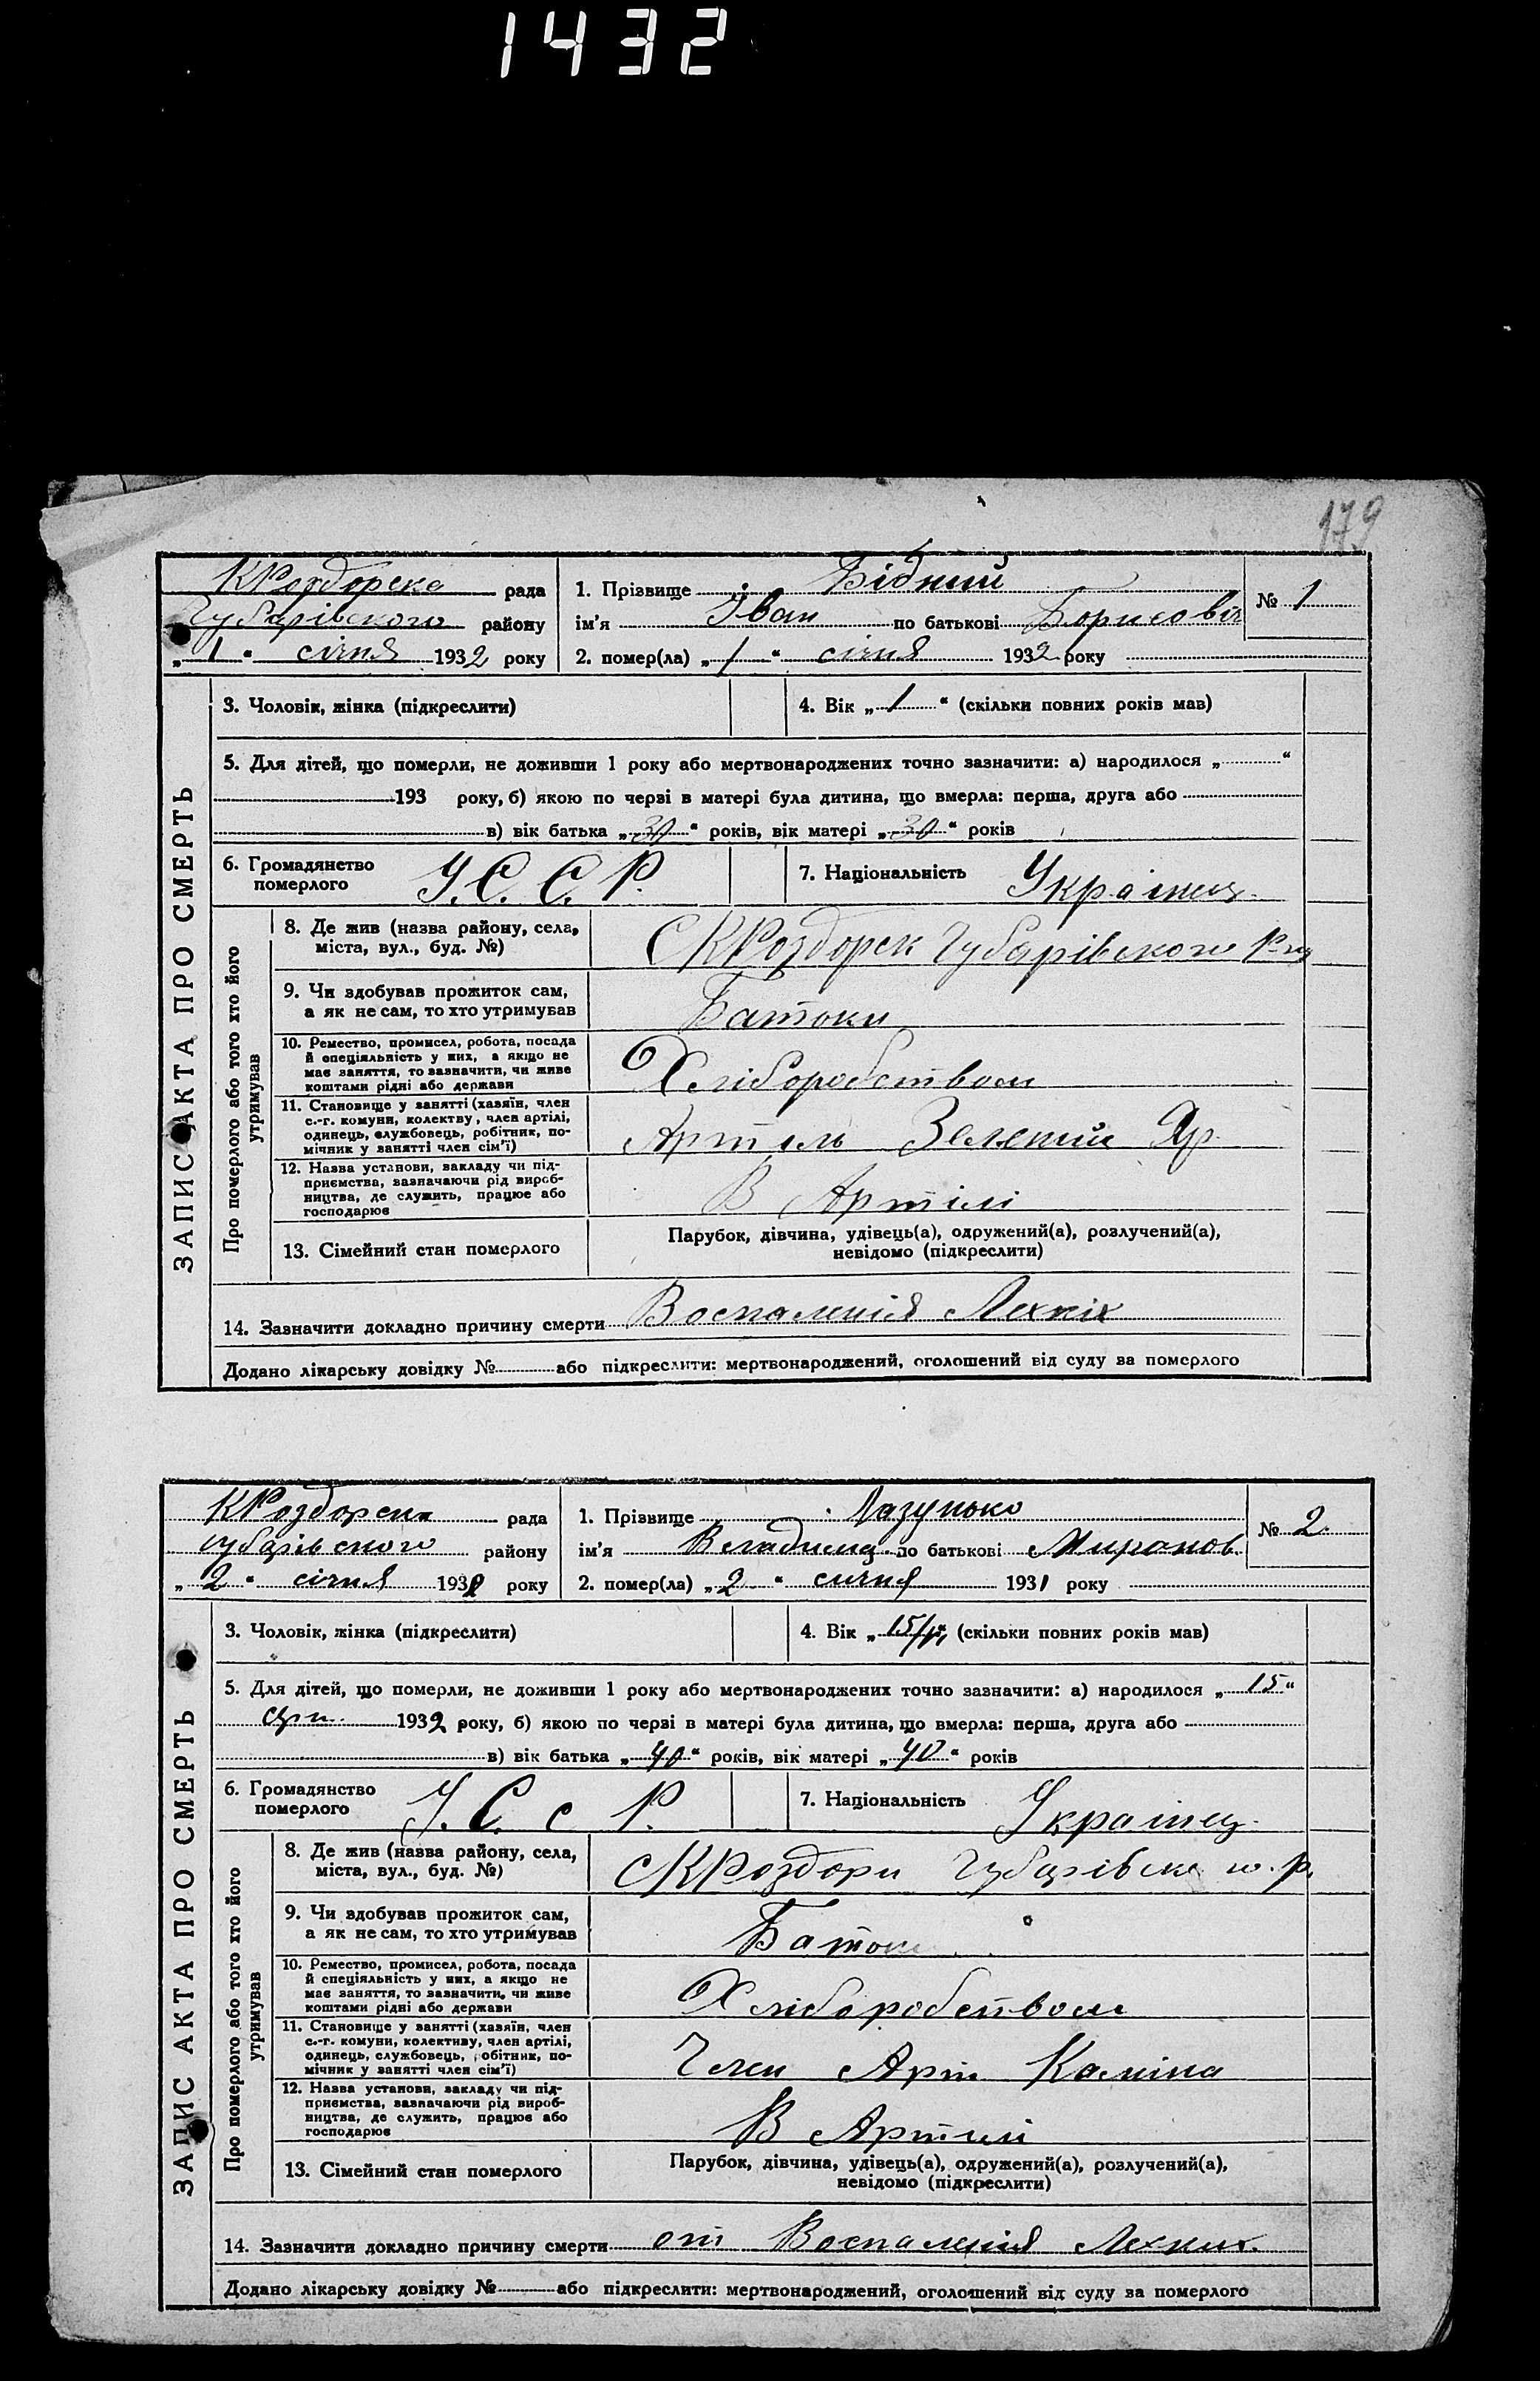 1432
179
КРоздорска рада
Губарівского району
„ 1 “ січня 1932 року
1. Прізвище Бідний
ім'я Іван по батькові Борисовіч
№ 1
2. помер(ла) „ 1 “ січня 1932 року
ЗАПИС АКТА ПРО СМЕРТЬ
3. Чоловік, жінка (підкреслити)
4. Вік „ 1 “ (скільки повних років мав)
5. Для дітей, що померли, не доживши 1 року або мертвонароджених точно зазначити: а) народилося „ “
193 року, б) якою по черзі в матері була дитина, що вмерла: перша, друга або
в) вік батька „ 30 “ років, вік матері „ 30 “ років
6. Громадянство
померлого
У.С.С.Р.
7. Національність Украінец.
Про померлого або того хто його
утримував
8. Де жив (назва району, села,
міста, вул., буд. №)
С КРоздорск Губарівского
9. Чи здобував прожиток сам,
а як не сам, то хто утримував
Батоки
10. Ремество, промисел, робота, посада
й спеціяльність у них, а якщо не
має заняття, то зазначити, чи живе
коштами рідні або держави
Хліборобством
11. Становище у занятті (хазяїн, член
с.-г. комуни, колектву, член артілі,
одинець, службовець, робітник, по-
мічник у занятті член сім'ї)
Артиль Зелений Яр.
12. Назва установи, закладу чи під-
приємства, зазначаючи рід вироб-
ництва, де служить, працює або
господарює
В Артілі
13. Сімейний стан померлого
Парубок, дівчина, удівець(а), одружений(а), розлучений(а),
невідомо (підкреслити)
14. Зазначити докладно причину смерти Воспаленія Лехкіх
Додано лікарську довідку № або підкреслити: мертвонароджений, оголошений від суду за померлого
КРоздорска рада
губарівского району
„ 2 “ січня 1932 року
1. Прізвище Лазунько
ім'я Владимир по батькові Миронов.
№ 2
2. помер(ла) „ 2 “ сичня 1931 року
ЗАПИС АКТА ПРО СМЕРТЬ
3. Чоловік, жінка (підкреслити)
4. Вік „ 15/ “ (скільки повних років мав)
5. Для дітей, що померли, не доживши 1 року або мертвонароджених точно зазначити: а) народилося „ 15 “
1932 року, б) якою по черзі в матері була дитина, що вмерла: перша, друга або
в) вік батька „ 40 “ років, вік матері „ 40 “ років
6. Громадянство
померлого
У.С.с Р.
7. Національність Украінец.
Про померлого або того хто його
утримував
8. Де жив (назва району, села,
міста, вул., буд. №)
с КРоздори Губарівск
9. Чи здобував прожиток сам,
а як не сам, то хто утримував
Батоки
10. Ремество, промисел, робота, посада
й спеціяльність у них, а якщо не
має заняття, то зазначити, чи живе
коштами рідні або держави
Хліборобством
11. Становище у занятті (хазяїн, член
с.-г. комуни, колективу, член артілі,
одинець, службовець, робітник, по-
мічник у занятті член сім'ї)
Член Арт Калініна
12. Назва установи, закладу чи під-
приємства, зазначаючи рід вироб-
ництва, де служить, працює або
господарює
В Артилі
13. Сімейний стан померлого
Парубок, дівчина, удівець(а), одружений(а), розлучений(а),
невідомо (підкреслити)
14. Зазначити докладно причину смерти от Воспаленія Лехких.
Додано лікарську довідку № або підкреслити: мертвонароджений, оголошений від суду за померлого